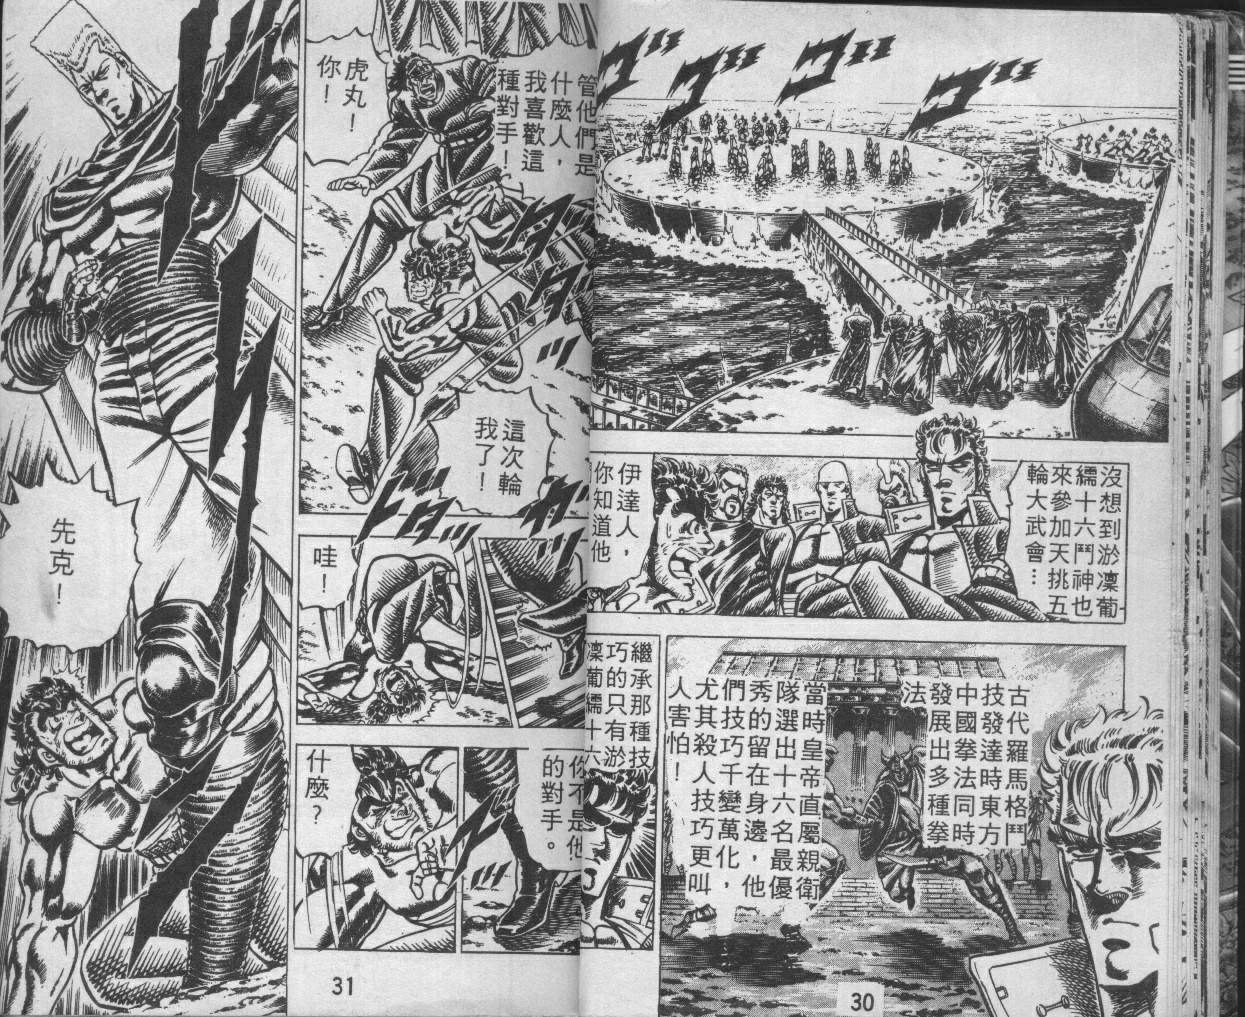 ゴゴゴゴ
沒想到淤凜葡
繻十六鬥神也
來參加天挑五
輪大武會…
伊達人，
你知道他
古代羅馬格鬥
技發達時東方
中國拳法同時
發展出多種拳
法
當時皇帝直屬親衛
隊選出十六名最優
秀的留在身邊，他
們技巧千變萬化，
尤其殺人技巧更叫
人害怕！
繼承那種技
巧的只有淤
凜葡繻十六
30
管他們是
什麼人，
我喜歡這
種對手！
虎丸！
你！
這次輪
我了！
哇！
你不是他
的對手。
什麼？
先克！
31